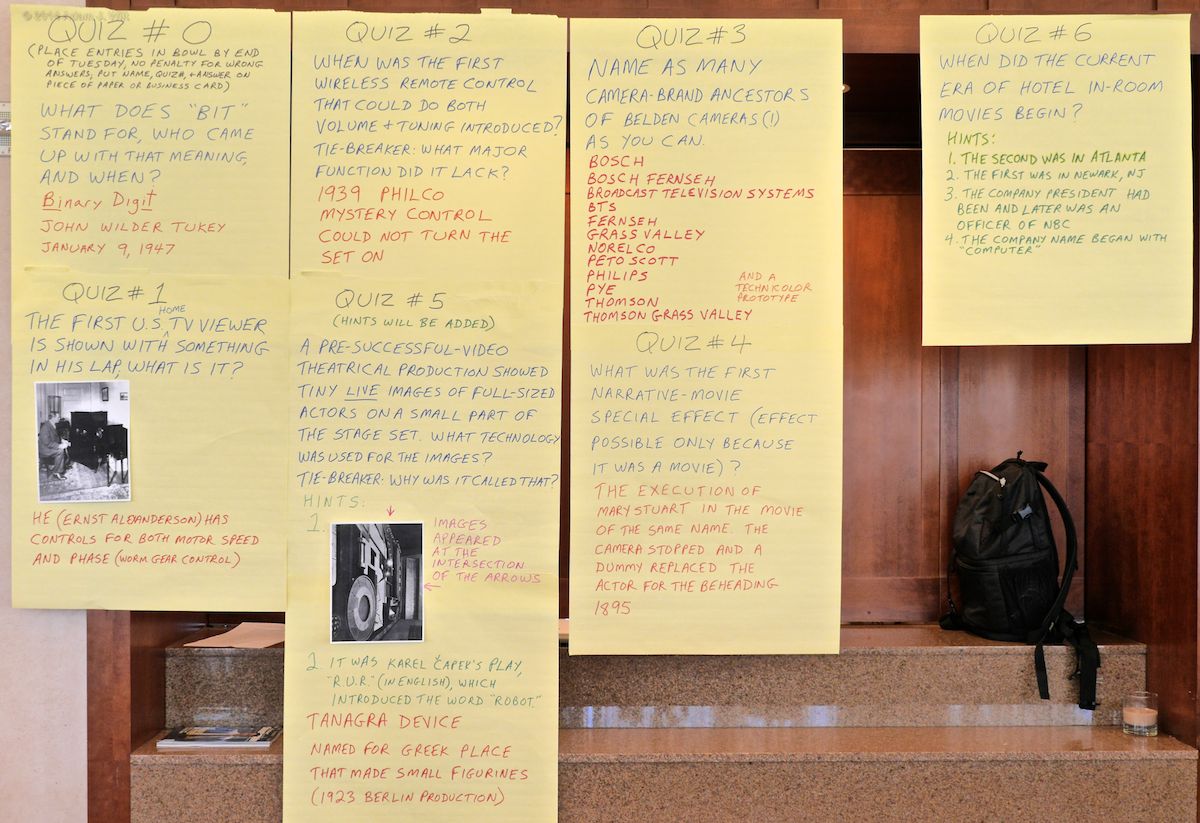 QUIZ #0
(PLACE ENTRIES IN BOWL BY END
OF TUESDAY, NO PENALTY FOR WRONG
ANSWERS; PUT NAME, QUIZ#, + ANSWER ON
PIECE OF PAPER OR BUSINESS CARD)
WHAT DOES "BIT"
STAND FOR, WHO CAME
UP WITH THAT MEANING,
AND WHEN?
Binary Digit
JOHN WILDER TUKEY
JANUARY 9, 1947
QUIZ #1
THE FIRST U.S. HOME TV VIEWER
IS SHOWN WITH SOMETHING
IN HIS LAP, WHAT IS IT?
HE (ERNST ALEXANDERSON) HAS
CONTROLS FOR BOTH MOTOR SPEED
AND PHASE (WORM GEAR CONTROL)
QUIZ #2
WHEN WAS THE FIRST
WIRELESS REMOTE CONTROL
THAT COULD DO BOTH
VOLUME + TUNING INTRODUCED?
TIE-BREAKER: WHAT MAJOR
FUNCTION DID IT LACK?
1939 PHILCO
MYSTERY CONTROL
COULD NOT TURN THE
SET ON
QUIZ #5
(HINTS WILL BE ADDED)
A PRE-SUCCESSFUL-VIDEO
THEATRICAL PRODUCTION SHOWED
TINY LIVE IMAGES OF FULL-SIZED
ACTORS ON A SMALL PART OF
THE STAGE SET. WHAT TECHNOLOGY
WAS USED FOR THE IMAGES?
TIE-BREAKER: WHY WAS IT CALLED THAT?
HINTS:
1.
IMAGES
APPEARED
AT THE
INTERSECTION
OF THE ARROWS
2 IT WAS KAREL ČAPEK'S PLAY,
"R.U.R." (IN ENGLISH), WHICH
INTRODUCED THE WORD "ROBOT."
TANAGRA DEVICE
NAMED FOR GREEK PLACE
THAT MADE SMALL FIGURINES
(1923 BERLIN PRODUCTION)
QUIZ #3
NAME AS MANY
CAMERA-BRAND ANCESTORS
OF BELDEN CAMERAS (!)
AS YOU CAN.
BOSCH
BOSCH FERNSEH
BROADCAST TELEVISION SYSTEMS
BTS
FERNSEH
GRASS VALLEY
NORELCO
PETO SCOTT
PHILIPS
PYE
THOMSON
THOMSON GRASS VALLEY
AND A
TECHNICOLOR
PROTOTYPE
QUIZ #4
WHAT WAS THE FIRST
NARRATIVE-MOVIE
SPECIAL EFFECT (EFFECT
POSSIBLE ONLY BECAUSE
IT WAS A MOVIE)?
THE EXECUTION OF
MARY STUART IN THE MOVIE
OF THE SAME NAME. THE
CAMERA STOPPED AND A
DUMMY REPLACED THE
ACTOR FOR THE BEHEADING
1895
QUIZ #6
WHEN DID THE CURRENT
ERA OF HOTEL IN-ROOM
MOVIES BEGIN?
HINTS:
1. THE SECOND WAS IN ATLANTA
2. THE FIRST WAS IN NEWARK, NJ
3. THE COMPANY PRESIDENT HAD
BEEN AND LATER WAS AN
OFFICER OF NBC
4. THE COMPANY NAME BEGAN WITH
"COMPUTER"